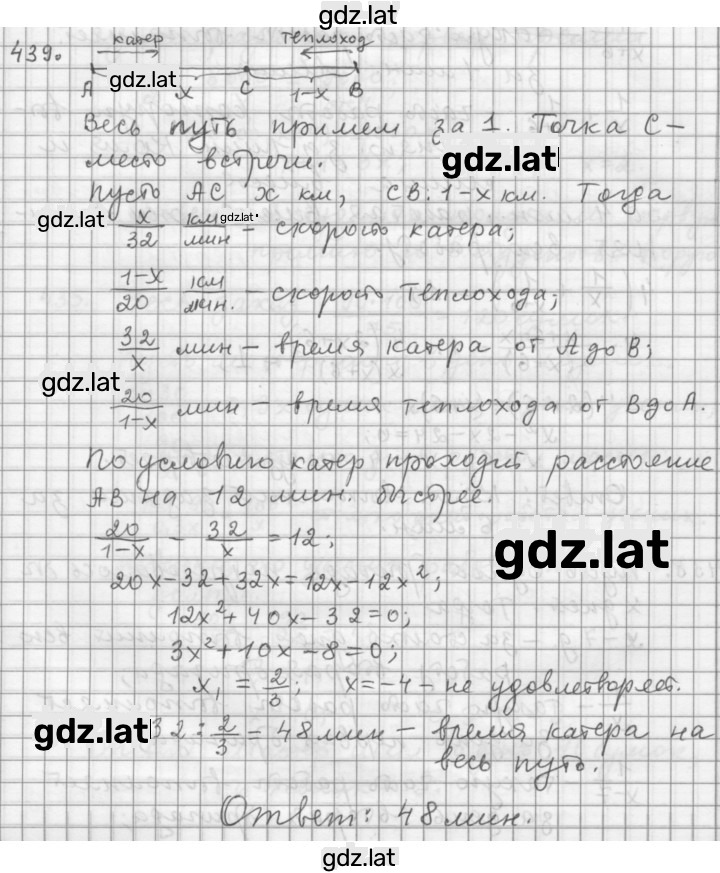 gdz.lat
439. катер теплоход
gdz.lat
A x C 1-x B
Весь путь примем за 1. Точка C-
место встречи.
gdz.lat
Пусть AC x км, CB: 1-x км. Тогда
gdz.lat x/32 км/мин gdz.lat - скорость катера;
1-x/20 км/мин. - скорость теплохода;
32/x мин - время катера от A до B;
gdz.lat
20/1-x мин - время теплохода от B до A.
По условию катер проходит расстояние
AB на 12 мин. быстрее.
20/1-x - 32/x = 12;
gdz.lat
20x-32+32x=12x-12x²;
12x²+40x-32=0;
3x²+10x-8=0;
x₁ = 2/3; x=-4 - не удовлетворяет.
gdz.lat 32 : 2/3 = 48 мин - время катера на
весь путь.
Ответ: 48 мин.
gdz.lat